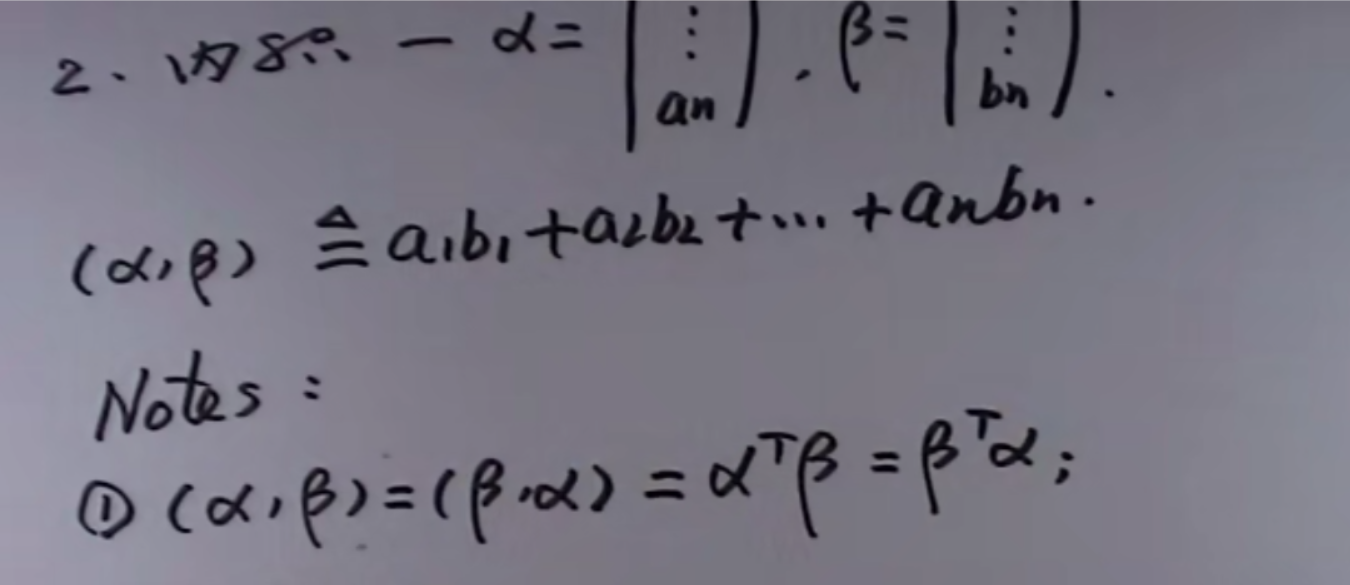 2、内积 — α = (⋮ an), β = (⋮ bn).
(α, β) ≜ a₁b₁ + a₂b₂ + ... + anbn.
Notes:
① (α, β) = (β, α) = αᵀβ = βᵀα;